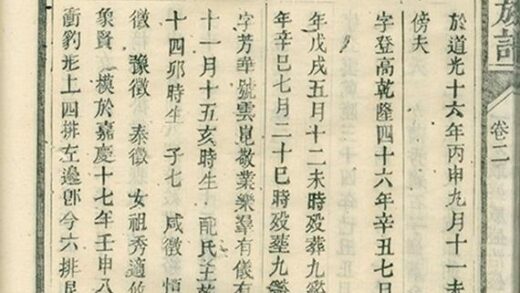 族譜
卷二
於道光十六年丙申九月十一未
傍夫
字登高乾隆四十六年辛丑七日
年戊戌五月十二未時歿葬九
年辛巳七月二十巳時歿葬九
字芳華號雲崑敬業樂羣有儀有
十一月十五亥時生 配氏
十四卯時生 子七 咸徵
徵 豫徵 泰徵 女祖秀適
象賢 模於嘉慶十七年壬申八
衝豹形上四排左邊郎今六排